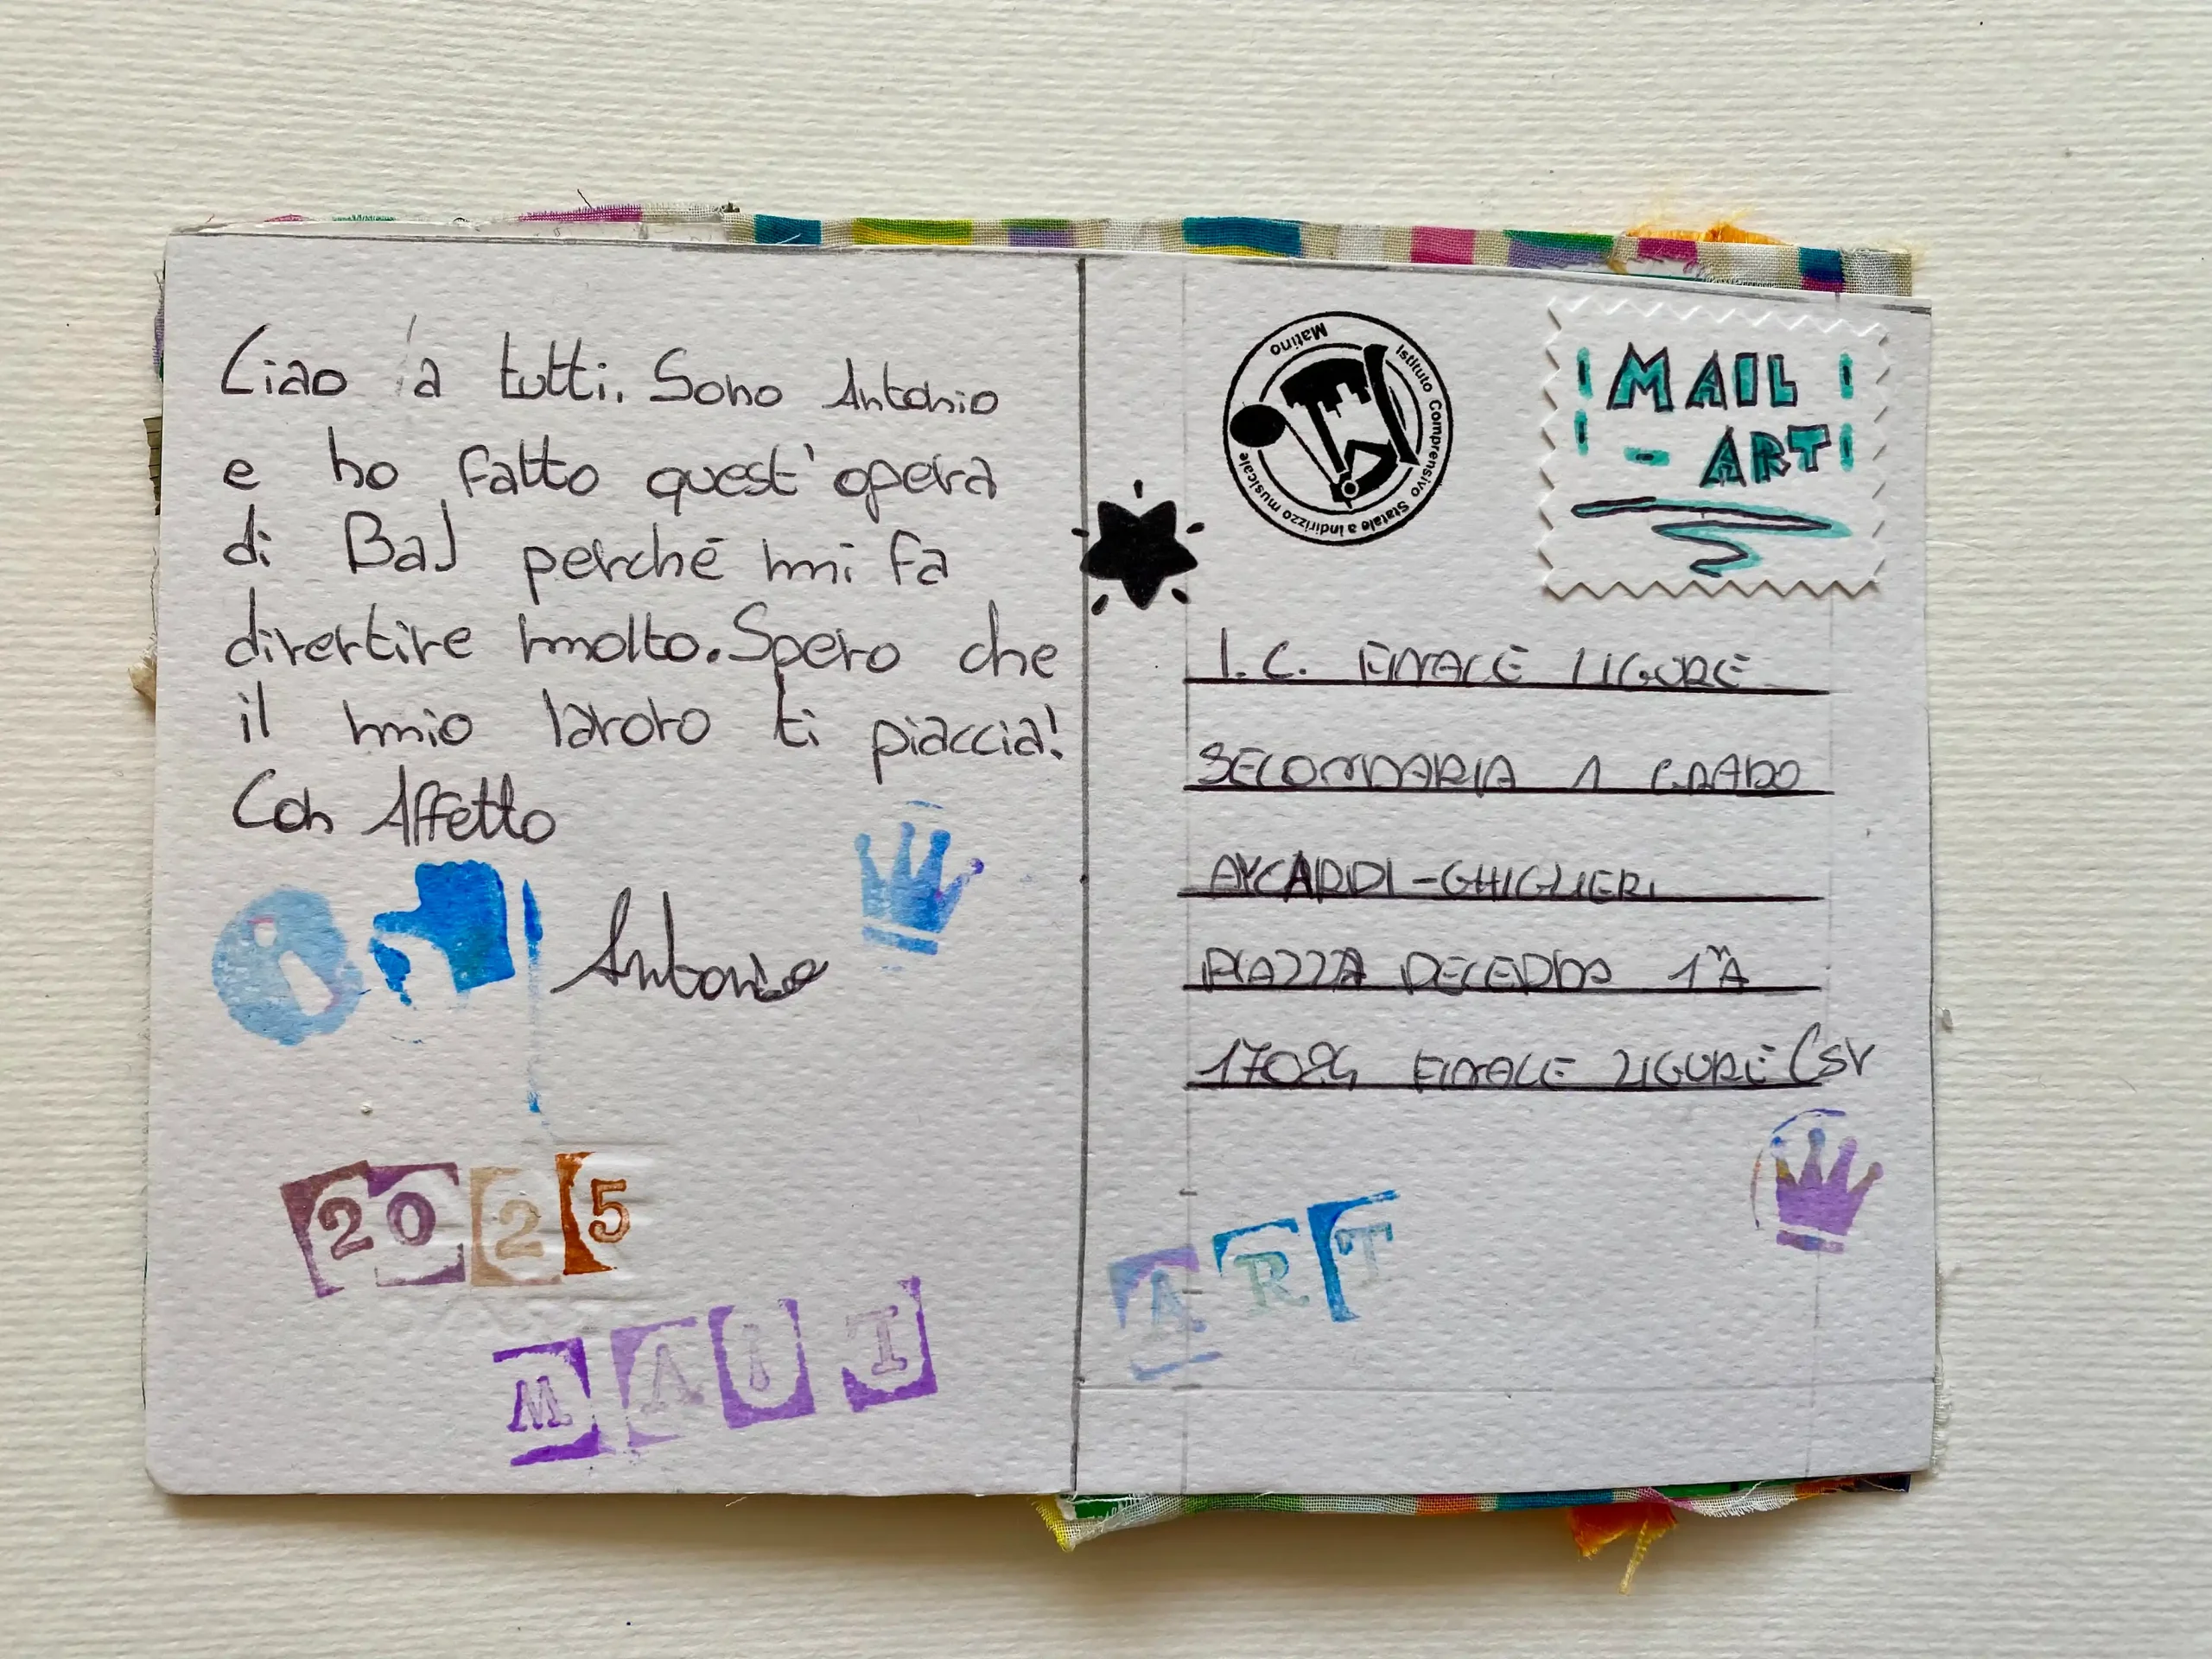 Ciao a tutti. Sono Antonio
e ho fatto quest'opera
di BaJ perché mi fa
divertire molto. Spero che
il mio lavoro ti piaccia!
Con Affetto
Antonio
2025
MAIL
Istituto Comprensivo Statale a indirizzo musicale
Matino
MAIL
-ART
I.C. FINALE LIGURE
SECONDARIA 1 GRADO
AYCARDI-GHIGLIERI
PIAZZA
17024 FINALE LIGURE (SV
ART